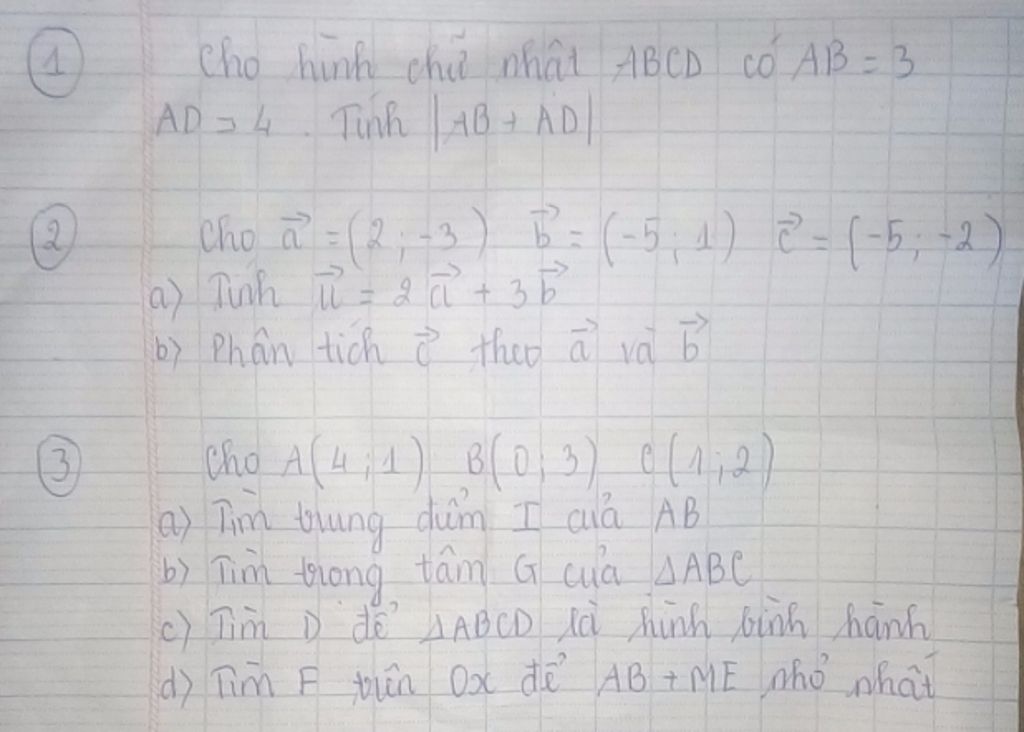 ① Cho hình chữ nhật ABCD có AB = 3
AD = 4. Tính |AB + AD|
② Cho a⃗ = (2; -3) b⃗ = (-5; 1) c⃗ = (-5; -2)
a) Tính u⃗ = 2a⃗ + 3b⃗
b) Phân tích c⃗ theo a⃗ và b⃗
③ Cho A(4;1) B(0;3) C(1;2)
a) Tìm trung điểm I của AB
b) Tìm trọng tâm G của ΔABC
c) Tìm D để ΔABCD là hình bình hành
d) Tìm F trên Ox để AB + ME nhỏ nhất